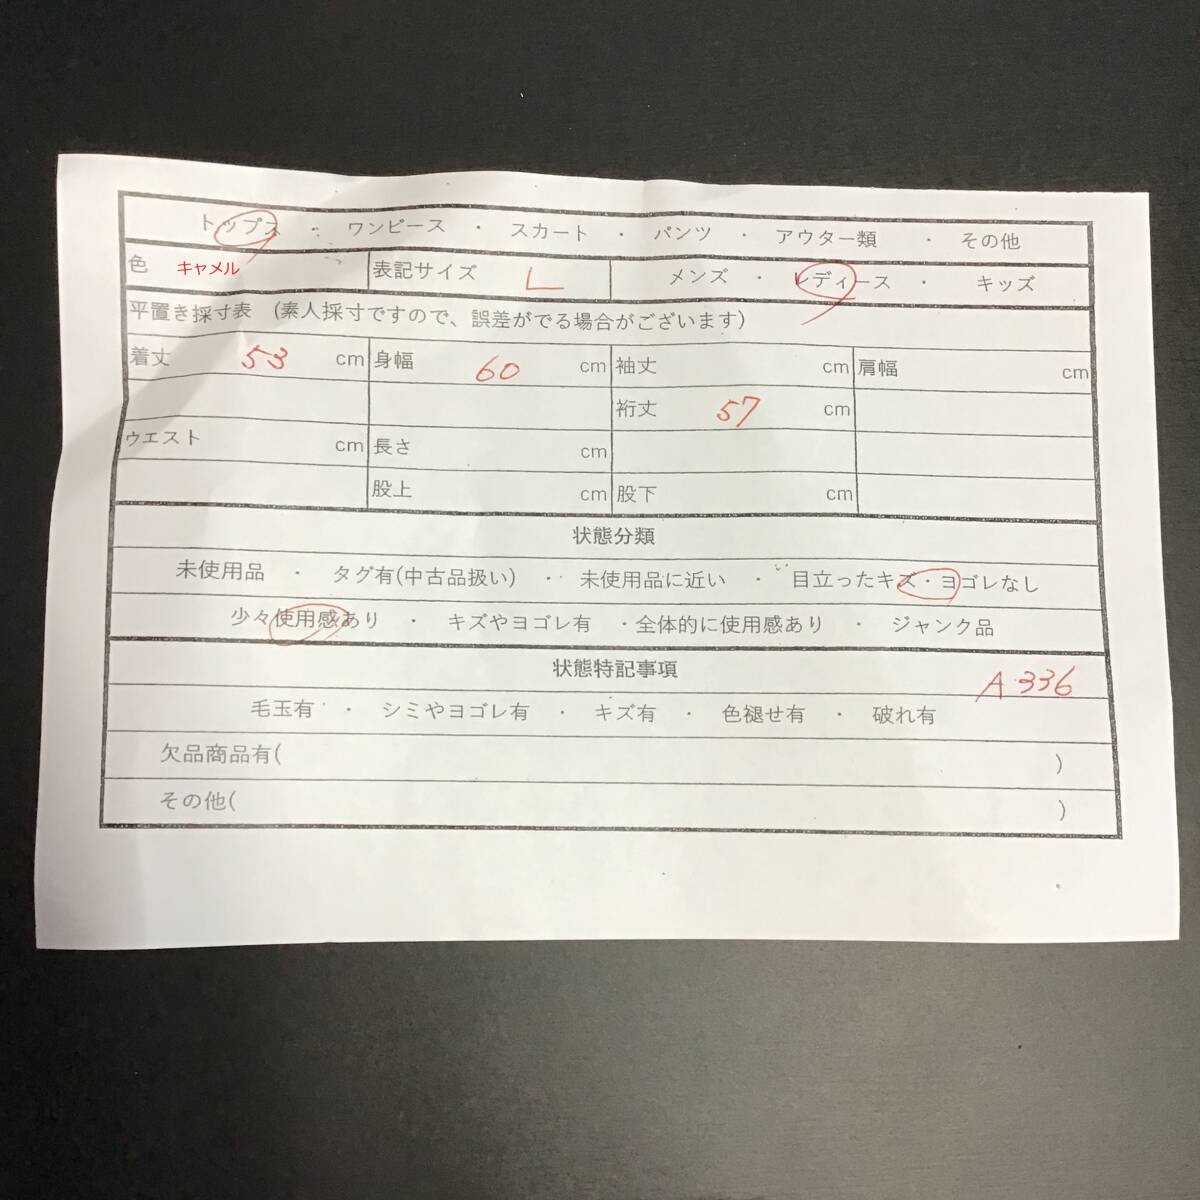 トップス ・ ワンピース ・ スカート ・ パンツ ・ アウター類 ・ その他
色 キャメル 表記サイズ L メンズ ・ レディース ・ キッズ
平置き採寸表 (素人採寸ですので、誤差がでる場合がございます)
着丈 53 cm 身幅 60 cm 袖丈 cm 肩幅 cm
裄丈 57 cm
ウエスト cm 長さ cm
股上 cm 股下 cm
状態分類
未使用品 ・ タグ有(中古品扱い) ・ 未使用品に近い ・ 目立ったキズ・ヨゴレなし
少々使用感あり ・ キズやヨゴレ有 ・全体的に使用感あり ・ ジャンク品
状態特記事項
A336
毛玉有 ・ シミやヨゴレ有 ・ キズ有 ・ 色褪せ有 ・ 破れ有
欠品商品有( )
その他( )